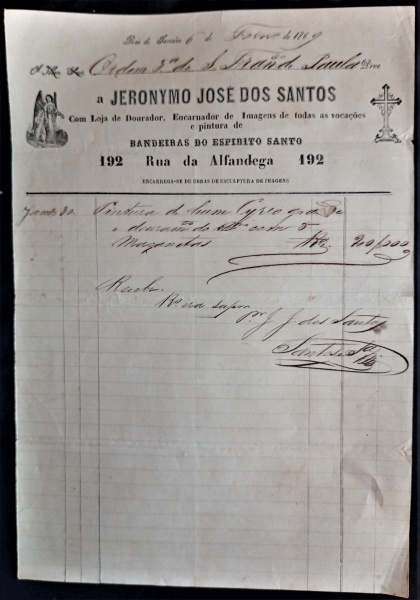 Rio de Janeiro 6 de Fevro de 1869
A Ordem 3ª de S. Franco de Paula Deve
a JERONYMO JOSÉ DOS SANTOS
Com Loja de Dourador, Encarnador de Imagens de todas as vocações
e pintura de
BANDEIRAS DO ESPIRITO SANTO
192 Rua da Alfandega 192
ENCARREGA-SE DE OBRAS DE ESCULPTURA DE IMAGENS
Pintura de hum Cyrio
com 5
Massanetas Rs. 200/000
Recb.
Rº era supra
Pr J. J. dos Santos
Santos